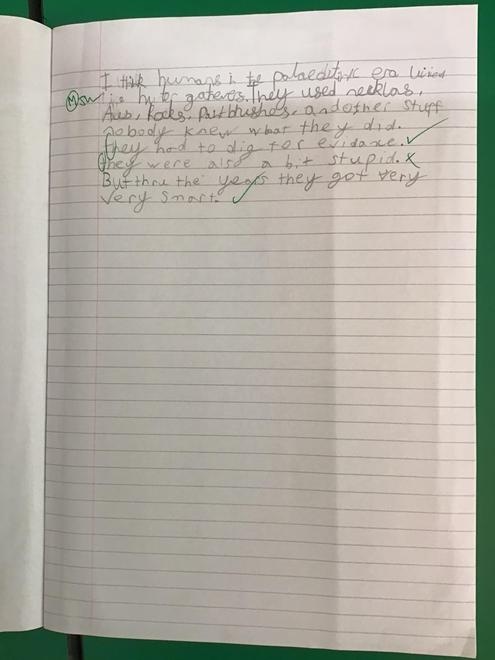 I think humans in the palaeditohic era lived
(M) SW like hunter gatherers. They used necklas,
Axes, Rocks, Paitbrushes, and other stuff
nobody knew what they did.
they had to dig for evidance. ✓
they were also a bit stupid. x
But thru the years they got very
very smart. ✓